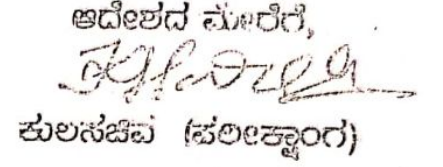 ಆದೇಶದ ಮೇರೆಗೆ,
ಕುಲಸಚಿವ (ಪರೀಕ್ಷಾಂಗ)